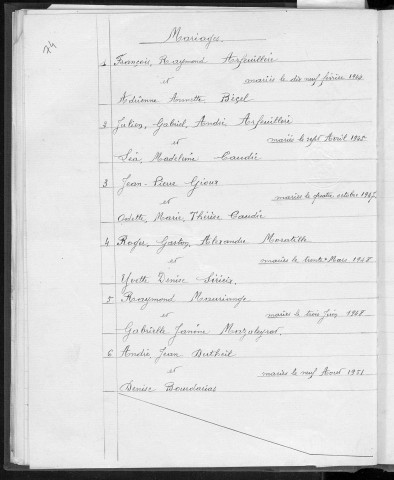 Mariages.
1 François, Raymond Arfeuillère
et mariés le dix neuf février
Adrienne Annette Bézel
2 Julien, Gabriel, André Arfeuillère
et mariés le sept Avril 1945
Léa Madeleine Caudie
3 Jean-Pierre Gioux
et mariés le quatre octobre 1947
Odette, Marie, Thérèse Caudie
4 Roger, Gaston, Alexandre
et mariés le trente Mars 1948
Yvette Denise
5 Raymond
et mariés le trois Juin 1948
Gabrielle Janine
6 André Jean Dutheil
et mariés le neuf Août 1951
Denise Bourdarias